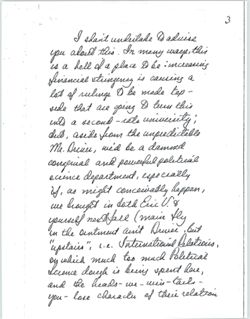 3
I shan't undertake to advise
you about this. In many ways, this
is a hell of a place to be: increasing
financial stringency is causing a
lot of rulings to be made top-
side that are going to turn this
into a second-rate university;
but, aside from the unpredictable
Mr. we'd be a damned
congenial and powerful political
science department, especially
if, as might conceivably happen,
we brought in both Eric V &
yourself next fall (main fly
in the ointment isn't but
"upstairs", i.e. International Relations,
on which much too much Political
Science dough is being spent here,
and the heads-we-win-tails-
you-lose character of their relation